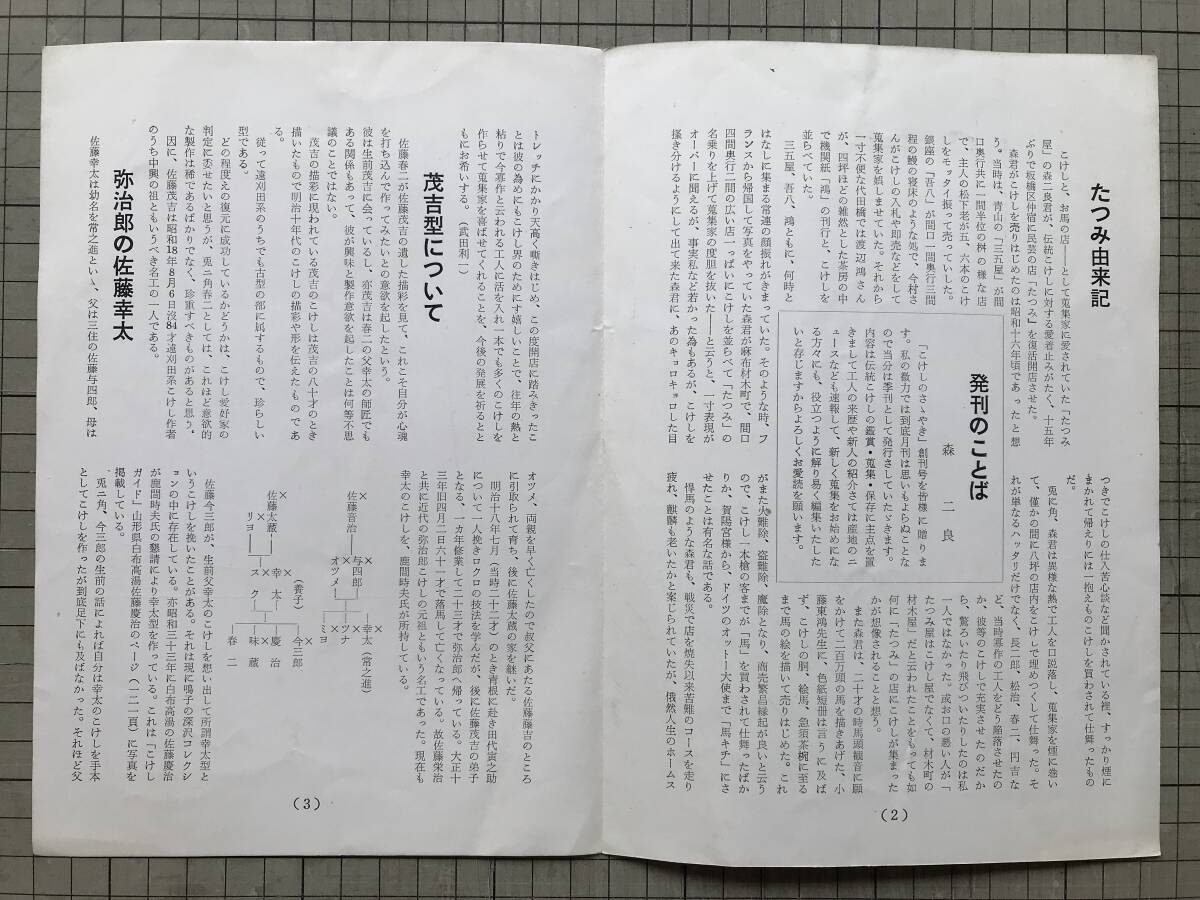 たつみ由来記
こけしと、お馬の店――として蒐集家に愛されていた「たつみ
屋」の森二良君が、伝統こけしに対する愛着止みがたく、十五年
ぶりで板橋区仲宿に民芸の店「たつみ」を復活開店させた。
森君がこけしを売りはじめたのは昭和十六年頃であったと想
う。当時は、青山の「三五屋」が間
口奥行共に一間半位の桝の様な店
で、主人の松下老が五、六本のこけ
しをモッタイ振って売っていた。
銀座の「吾八」が間口一間奥行三間
程の鰻の寝床のような処で、今村さ
んがこけしの入札や即売などをして
蒐集家を娯しませていた。それから
一寸不便な代田橋では渡辺鴻さん
が、四坪ほどの雑然とした茶房の中
で機関紙「鴻」の刊行と、こけしを
並らべていた。
三五屋、吾八、鴻ともに、何時と
はなしに集まる常連の顔振れがきまっていた。そのような時、フ
ランスから帰国して写真をやっていた森君が麻布材木町で、間口
四間奥行二間の広い店一っぱいにこけしを並らべて「たつみ」の
名乗りを上げて蒐集家の度胆を抜いた――と云うと、一寸表現が
オーバーに聞えるが、事実私など若かった為もあるが、こけしを
掻き分けるようにして出て来た森君に、あのキョロキョロした目
つきでこけしの仕入苦心談など聞かされている裡、すっかり煙に
まかれて帰えりには一抱えものこけしを買わされて仕舞ったもの
だ。
兎に角、森君は異様な熱で工人を口説落し、蒐集家を煙に巻い
て、僅かの間に八坪の店内をこけしで埋めつくして仕舞った。そ
れが単なるハッタリだけでなく、長二郎、松治、春二、円吉な
ど、当時寡作の工人をどう陥落させたの
か、彼等のこけしで充実させたのだか
ら、驚ろいたり飛びついたりしたのは私
一人ではなかった。或お口の悪い人が「
たつみ屋はこけし屋でなくて、材木町の
材木屋」だと云われたことをもっても如
何に「たつみ」の店にこけしが集まった
かが想像されることと想う。
また森君は、二十才の時馬頭観音に願
をかけて二百万頭の馬を描きあげた、小
藤東鴻先生に、色紙短冊は言うに及ば
ず、こけしの胴、絵馬、急須茶椀に至る
まで馬の絵を描いて売りはじめた。これ
がまた火難除、盗難除、魔除となり、商売繁昌縁起が良いと云う
ので、こけし一本槍の客までが「馬」を買わされて仕舞ったばか
りか、賀陽宮様から、ドイツのオットー大使まで「馬キチ」にさ
せたことは有名な話である。
悍馬のような森君も、戦災で店を焼失以来苦難のコースを走り
疲れ、麒麟も老いたかと案じられていたが、俄然人生のホームス
発刊のことば
森　二　良
「こけしのさゝやき」創刊号を皆様に贈りま
す。私の微力では到底月刊は思いもよらぬことな
ので当分は季刊として発行さしていたゞきます。
内容は伝統こけしの鑑賞・蒐集・保存に主点を置
きまして工人の来歴や新人の紹介さては産地のニ
ュースなども速報して、新しく蒐集をお始めにな
る方々にも、役立つように解り易く編集いたした
いと存じますからよろしくお愛読を願います。
(2)
トレッチにかかり天高く嘶きはじめ、この度開店に踏みきったこ
とは彼の為めにもこけし界のためにす嬉しいことで、往年の熱と
粘りで今寡作と云われる工人に活を入れ一本でも多くのこけしを
作らせて蒐集家を喜ばせてくれることを、今後の発展を祈るとと
もにお希いする。（武田利一）
茂吉型について
佐藤春二が佐藤茂吉の遺した描彩を見て、これこそ自分が心魂
を打ち込んで作ってみたいとの意欲を起したという。
彼は生前茂吉に会っているし、亦茂吉は春二の父幸太の師匠でも
ある関係もあって、彼が興味と製作意欲を起したことは何等不思
議のことではない。
茂吉の描彩に現われている茂吉のこけしは茂吉の八十才のとき
描いたもので明治十年代のこけしの描彩や形を伝えたものであ
る。
従って遠刈田系のうちでも古型の部に属するもので、珍らしい
型である。
どの程度えの復元に成功しているかどうかは、こけし愛好家の
判定に委せたいと思うが、兎ニ角春二としては、これほど意欲的
な製作は稀であるばかりでなく、珍重すべきものがあると思う。
因に、佐藤茂吉は昭和18年8月6日没84才遠刈田系こけし作者
のうち中興の祖ともいうべき名工の一人である。
弥治郎の佐藤幸太
佐藤幸太は幼名を常之進といゝ、父は三住の佐藤与四郎、母は
オツメ、両親を早く亡くしたので叔父にあたる佐藤藤吉のところ
に引取られて育ち、後に佐藤太蔵の家を継いだ。
明治十八年七月（当時二十二才）のとき青根に赴き田代寅之助
について一人挽きロクロの技法を学んだが、後に佐藤茂吉の弟子
となる、一カ年修業して二十三才で弥治郎へ帰っている。大正十
三年旧四月二日六十一才で落馬して亡くなっている。故佐藤栄治
と共に近代の弥治郎こけしの元祖ともいう名工であった。現在も
幸太のこけしを、鹿間時夫氏が所持している。
佐藤音治×
×与四郎
オツメ
×幸太（常之進）
×ツナ
ミヨ
佐藤太蔵×
リヨ×
幸太×（養子）
スク
今三郎×
慶治
味蔵×
春二
佐藤今三郎が、生前父幸太のこけしを想い出して所謂幸太型と
いうこけしを挽いたことがある。それは現に鳴子の深沢コレクシ
ョンの中に存在している。亦昭和三十三年に白布高湯の佐藤慶治
が鹿間時夫氏の懇請により幸太型を作っている。これは「こけし
ガイド」山形県白布高湯佐藤慶治のページ（一二一頁）に写真を
掲載している。
兎ニ角、今三郎の生前の話によれば自分は幸太のこけしを手本
としてこけしを作ったが到底足下にも及ばなかった。それほど父
(3)